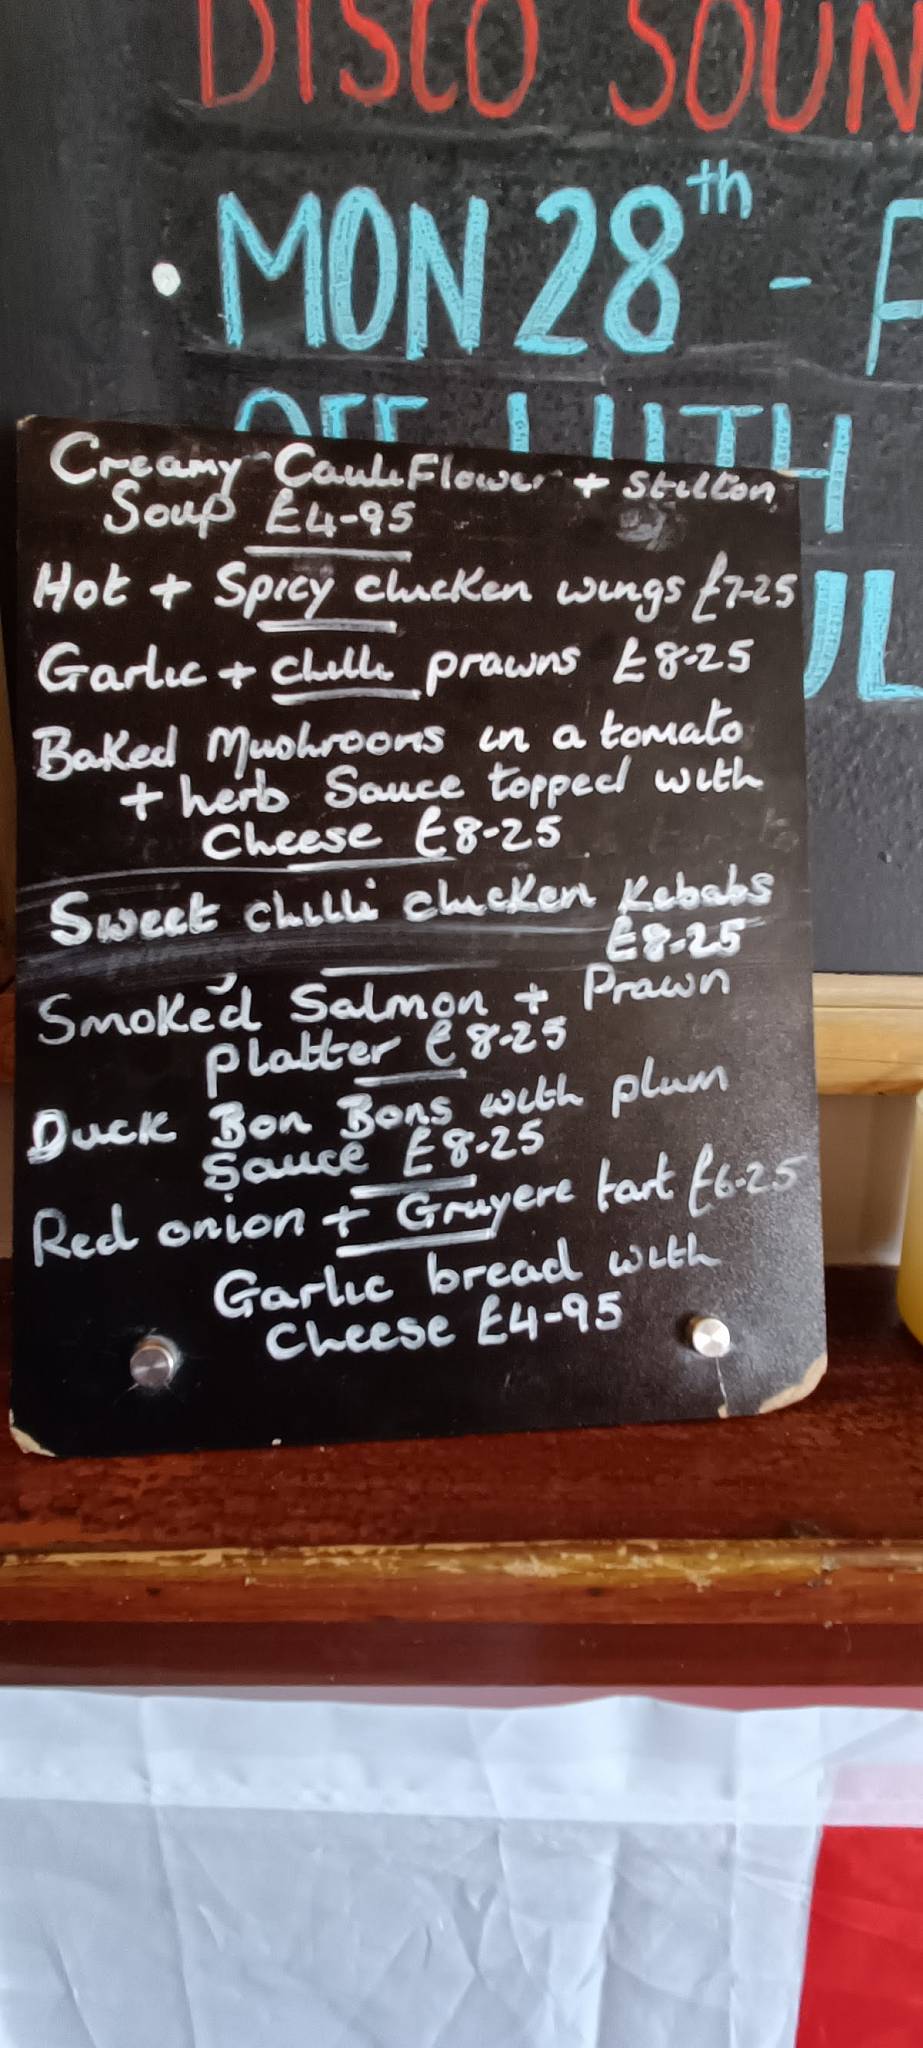 DISCO SOUN
• MON 28th - F
OFF WITH
UL
Creamy CauliFlower + Stilton
Soup £4-95
Hot + Spicy chicken wings £7-25
Garlic + chilli prawns £8-25
Baked Mushrooms in a tomato
+ herb Sauce topped with
Cheese £8-25
Sweet chilli chicken Kebabs
£8-25
Smoked Salmon + Prawn
platter £8-25
Duck Bon Bons with plum
Sauce £8-25
Red onion + Gruyere tart £6-25
Garlic bread with
Cheese £4-95